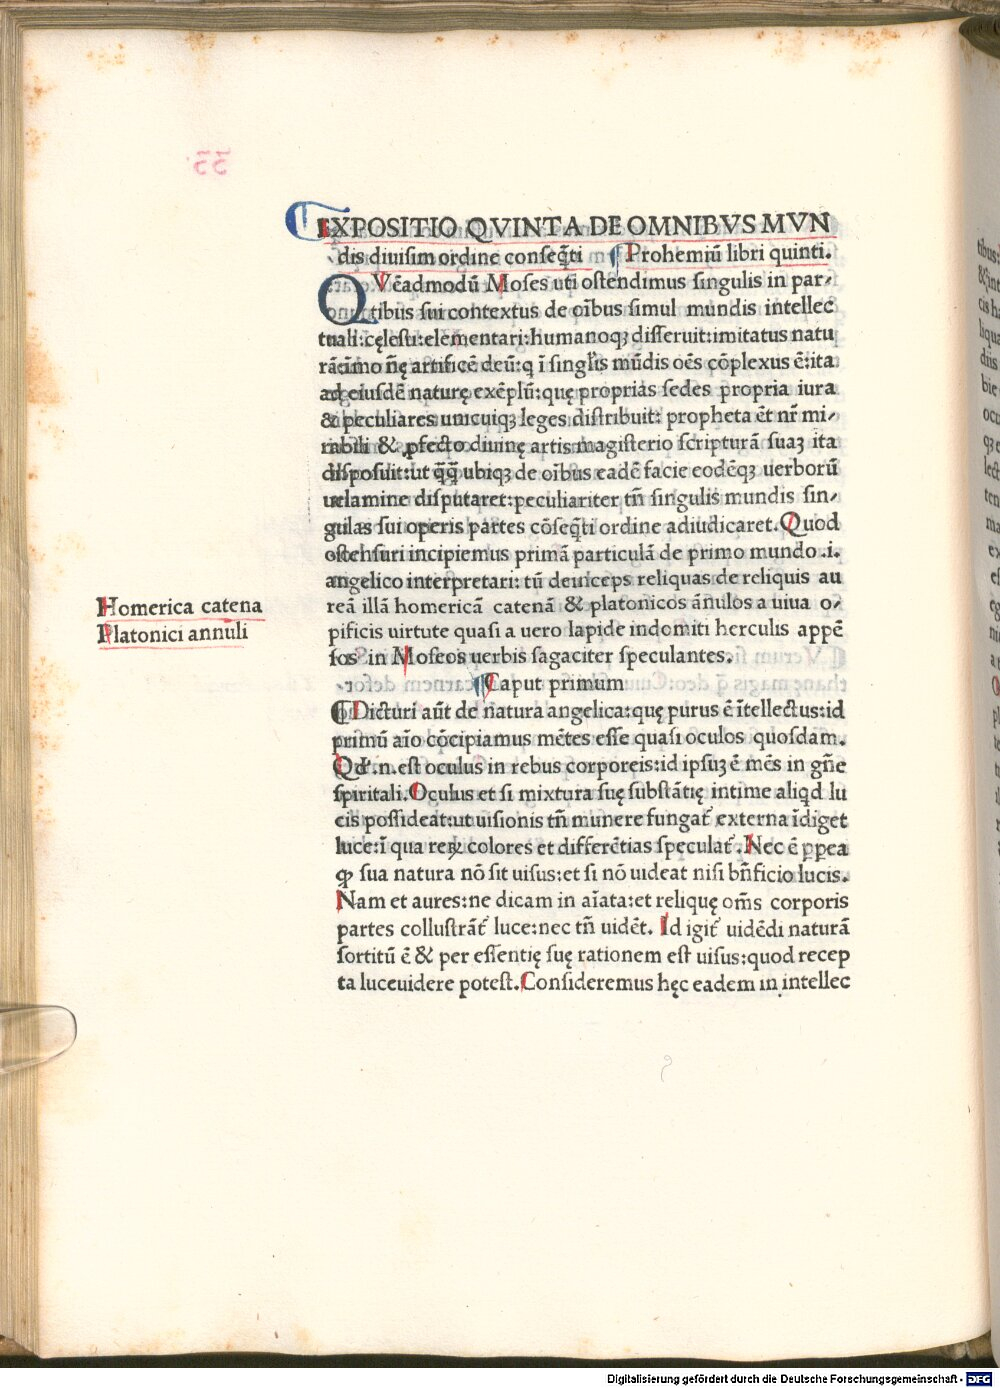 EXPOSITIO QVINTA DE OMNIBVS MVN
dis diuisim ordine conseq̄ti ¶ Prohemiū libri quinti.
QVēadmodū Moses uti ostendimus singulis in par-
tibus sui contextus de oībus simul mundis intellec
tuali:cęlesti:elementari:humanoqꝫ disseruit:imitatus natu
rā:imo nr̄ę artificē deū:q ī singlīs mūdis oēs cōplexus ē:ita
ad eiusdē naturę exēplū:quę proprias sedes propria iura
& peculiares unicuiqꝫ leges distribuit: propheta ēt nr̄ mi-
rabili & ꝑfecto diuinę artis magisterio scripturā suaꝫ ita
disposuit:ut q̄q̄ ubiqꝫ de oībus eadē facie eodēqꝫ uerborū
uelamine disputaret:peculiariter tn̄ singulis mundis sin-
gulas sui operis partes cōseq̄ti ordine adiudicaret.Quod
ostensuri incipiemus primā particulā de primo mundo .i.
angelico interpretari: tū deinceps reliquas de reliquis au
reā illā homericā catenā & platonicos ānulos a uiua o-
pificis uirtute quasi a uero lapide indomiti herculis appē
sos in Moseos uerbis sagaciter speculantes.
Homerica catena
Platonici annuli
¶Caput primum
¶Dicturi aūt de natura angelica:quę purus ē ītellectus:id
primū aīo cōcipiamus mētes esse quasi oculos quosdam.
Qđ .n. est oculus in rebus corporeis:id ipsuꝫ ē mēs in gn̄e
spiritali.Oculus et si mixtura suę substātię intime aliqd lu
cis possideat:ut uisionis tn̄ munere fungat᷑ externa īdiget
luce:ī qua reꝝ colores et differētias speculat᷑.Nec ē ꝓpea
ꝙ sua natura nō sit uisus:et si nō uideat nisi bn̄ficio lucis.
Nam et aures:ne dicam in aīata:et reliquę om̄s corporis
partes collustrāt᷑ luce:nec tn̄ uidēt. Id igit᷑ uidēdi naturā
sortitū ē & per essentię suę rationem est uisus:quod recep
ta luce uidere potest.Consideremus hęc eadem in intellec
Digitalisierung gefördert durch die Deutsche Forschungsgemeinschaft - DFG